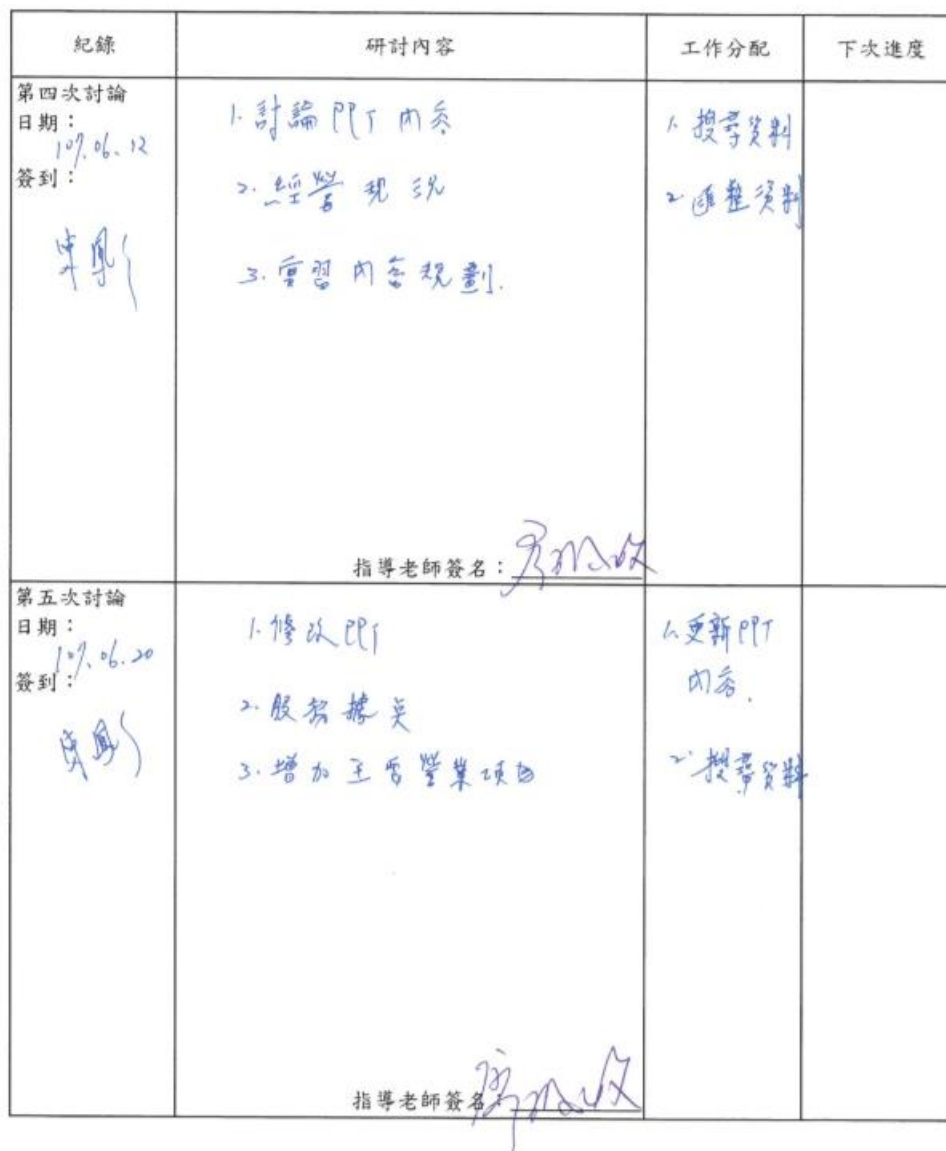 紀錄 研討內容 工作分配 下次進度
第四次討論
日期：
107.06.12
簽到：
1. 討論PPT內容
2. 經營現況
3. 實習內容規劃.
1. 搜尋資料
2. 匯整資料
指導老師簽名：
第五次討論
日期：
107.06.20
簽到：
1. 修改PPT
2. 服務據點
3. 增加主要營業項目
1. 更新PPT
內容.
2. 搜尋資料
指導老師簽名：